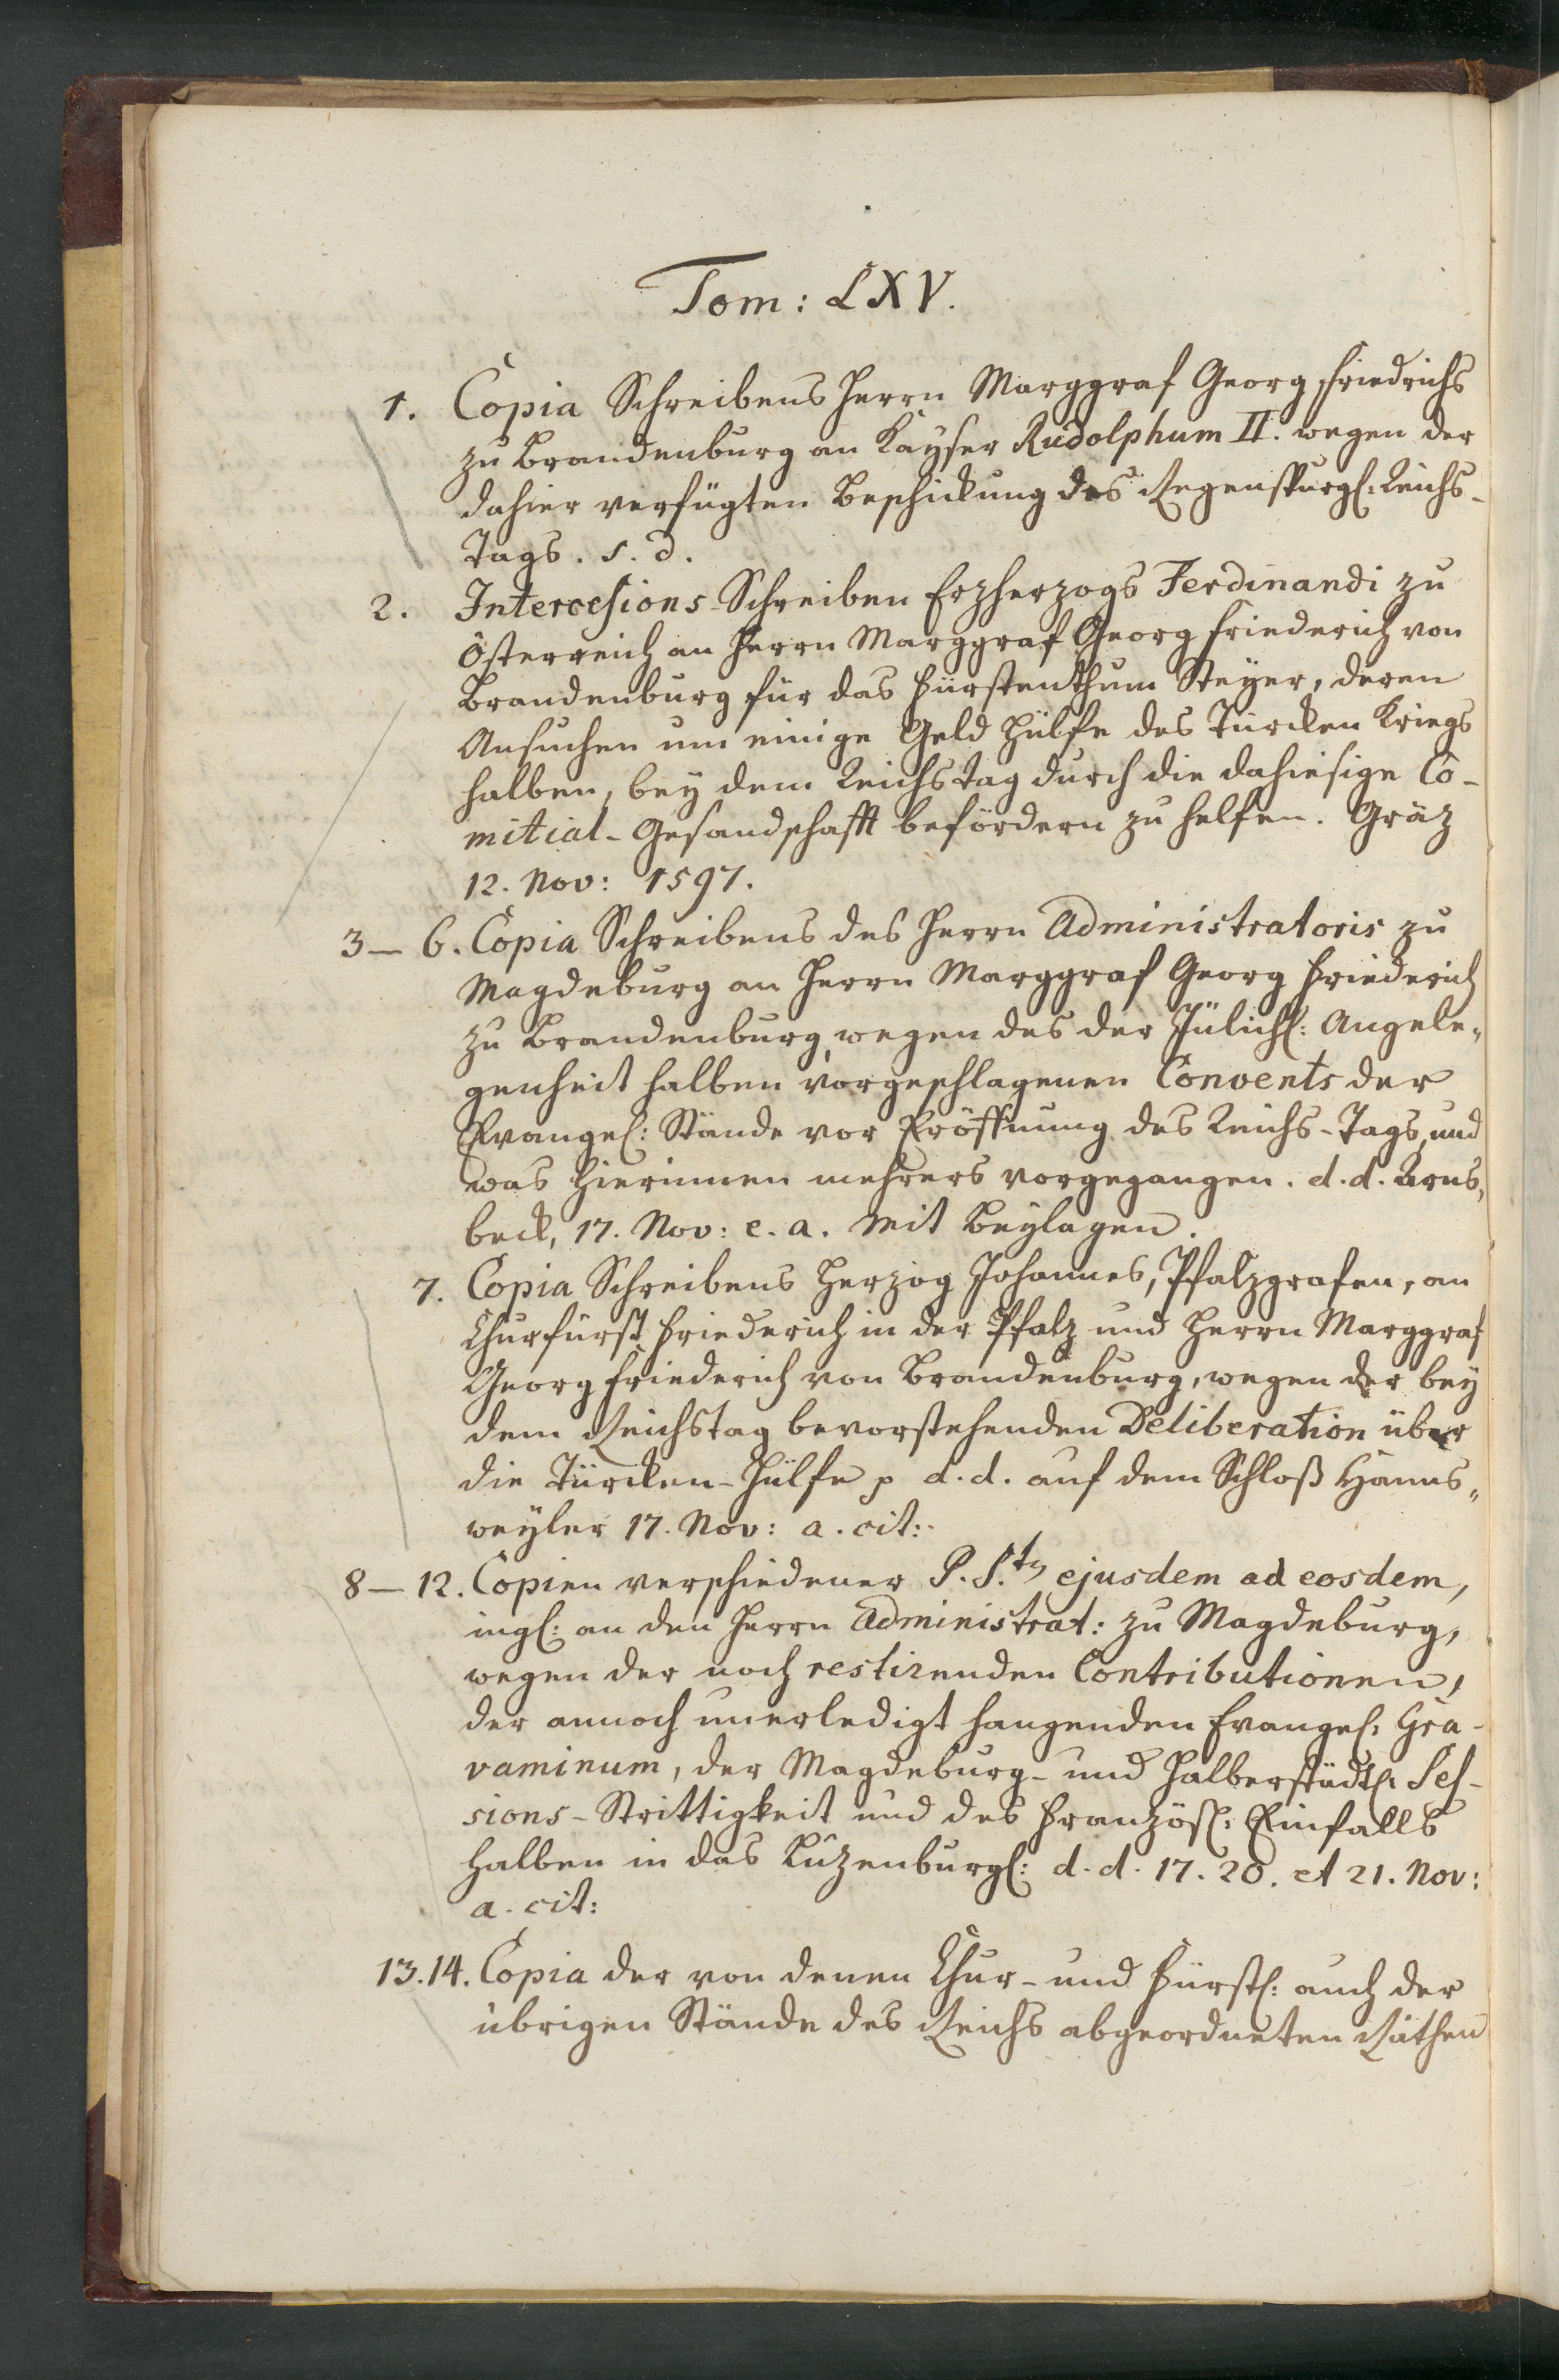 Tom: LXV.
1. Copia Schreibens Herrn Marggraf Georg Friedrichs
zu Brandenburg an Kayser Rudolphum II. wegen der
dahier verfügten Beschickung des Regenspurgl: Reichs-
Tags. s. d.
2. Intercessions-Schreiben Erzherzogs Ferdinandi zu
Österreich an Herrn Marggraf Georg Friederich von
Brandenburg für das Fürstenthum Steyer, deren
Ansuchen um einige Geld Hülfe des Türcken Kriegs
halben, bey dem Reichstag durch die dahiesige Co-
mitial-Gesandschafft befördern zu helfen. Gräz
12. Nov: 1597.
3-6. Copia Schreibens des Herrn Administratoris zu
Magdeburg an Herrn Marggraf Georg Friederich
zu Brandenburg, wegen des der Jülichl: Angele„
genheit halben vorgeschlagenen Convents der
Evangel: Stände vor Eröffnung des Reichs-Tags, und
was hierinnen mehrers vorgegangen. d. d. Arns„
beck, 17. Nov: e. a. mit Beylagen.
7. Copia Schreibens Herzog Johannes, Pfalzgrafen, an
Churfürst Friederich in der Pfalz und Herrn Marggraf
Georg Friederich von Brandenburg, wegen der bey
dem Reichstag bevorstehenden Deliberation über
die Türcken-Hülfe p d. d. auf dem Schloß Hanns„
weyler 17. Nov: a. cit:
8-12. Copien verschiedener P. S.ta ejusdem ad eosdem,
ingl: an den Herrn Administrat: zu Magdeburg,
wegen der noch restirenden Contributionen,
der annoch unerledigt hangenden Evangel: Gra-
vaminum, der Magdeburg- und Halberstädtl: Ses-
sions-Strittigkeit und des Französl: Einfalls
halben in das Lüzenburgl: d. d. 17. 20. et 21. Nov:
a. cit:
13.14. Copia der von denen Chur- und Fürstl: auch der
übrigen Stände des Reichs abgeordneten Räthen